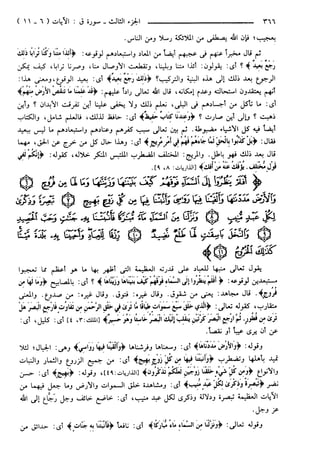 ٣٦٦ الجزء الثالث - سورة ق : الآيات (٦ - ١١)
يعجب، فإن الله يصطفي من الملائكة رسلا ومن الناس.
ثم قال مخبراً عنهم في عجبهم أيضاً من المعاد واستبعادهم لوقوعه: ﴿أئذا متنا وكنا تراباً ذلك
رجع بعيد﴾ ؟ أي: يقولون: أئذا متنا وبلينا، وتقطعت الأوصال منا، وصرنا تراباً، كيف يمكن
الرجوع بعد ذلك إلى هذه البنية والتركيب؟ ﴿ذلك رجع بعيد﴾ أي: بعيد الوقوع، ومعنى هذا:
أنهم يعتقدون استحالته وعدم إمكانه، قال الله تعالى راداً عليهم: ﴿قد علمنا ما تنقص الأرض منهم﴾
أي: ما تأكل من أجسادهم في البلى، نعلم ذلك ولا يخفى علينا أين تفرقت الأبدان ؟ وأين
ذهبت ؟ وإلى أين صارت ؟ ﴿وعندنا كتاب حفيظ﴾ أي: حافظ لذلك، فالعلم شامل، والكتاب
أيضاً فيه كل الأشياء مضبوطة. ثم بين تعالى سبب كفرهم وعنادهم واستبعادهم ما ليس ببعيد
فقال: ﴿بل كذبوا بالحق لما جاءهم فهم في أمر مريج﴾ أي: وهذا حال كل من خرج عن الحق، مهما
قال بعد ذلك فهو باطل. والمريج: المختلف المضطرب الملتبس المنكر خلاله، كقوله: ﴿إنكم لفي
قول مختلف. يؤفك عنه من أفك﴾ [الذاريات: ٨، ٩].
﴿أفلم ينظروا إلى السماء فوقهم كيف بنيناها وزيناها وما لها من فروج ۝ والأرض مددناها وألقينا فيها
رواسي وأنبتنا فيها من كل زوج بهيج ۝ تبصرة وذكرى لكل عبد منيب ۝ ونزلنا من السماء ماء مباركاً
فأنبتنا به جنات وحب الحصيد ۝ والنخل باسقات لها طلع نضيد ۝ رزقاً للعباد وأحيينا به بلدة ميتاً
كذلك الخروج ۝﴾
يقول تعالى منبهاً للعباد على قدرته العظيمة التي أظهر بها ما هو أعظم مما تعجبوا
مستبعدين لوقوعه: ﴿أفلم ينظروا إلى السماء فوقهم كيف بنيناها وزيناها﴾ ؟ أي: بالمصابيح ﴿وما لها من
فروج﴾. قال مجاهد: يعني من شقوق. وقال غيره: فتوق. وقال غيره: من صدوع. والمعنى
متقارب، كقوله تعالى: ﴿الذي خلق سبع سموات طباقاً ما ترى في خلق الرحمن من تفاوت فارجع البصر هل
ترى من فطور. ثم ارجع البصر كرتين ينقلب إليك البصر خاسئاً وهو حسير﴾ [الملك: ٣، ٤] أي: كليل، أي:
عن أن يرى عيباً أو نقصاً.
وقوله: ﴿والأرض مددناها﴾ أي: وسعناها وفرشناها ﴿وألقينا فيها رواسي﴾ وهي: الجبال؛ لئلا
تميد بأهلها وتضطرب ﴿وأنبتنا فيها من كل زوج بهيج﴾ أي: من جميع الزروع والثمار والنبات
والأنواع ﴿ومن كل شيء خلقنا زوجين لعلكم تذكرون﴾ [الذاريات: ٤٩]، وقوله: ﴿بهيج﴾ أي: حسن
نضر ﴿تبصرة وذكرى لكل عبد منيب﴾ أي: ومشاهدة خلق السموات والأرض وما جعل فيهما من
الآيات العظيمة تبصرة ودلالة وذكرى لكل عبد منيب، أي: خاضع خائف وجل رجاع إلى الله
عز وجل.
وقوله تعالى: ﴿ونزلنا من السماء ماء مباركاً﴾ أي: نافعاً ﴿فأنبتنا به جنات﴾ أي: حدائق من